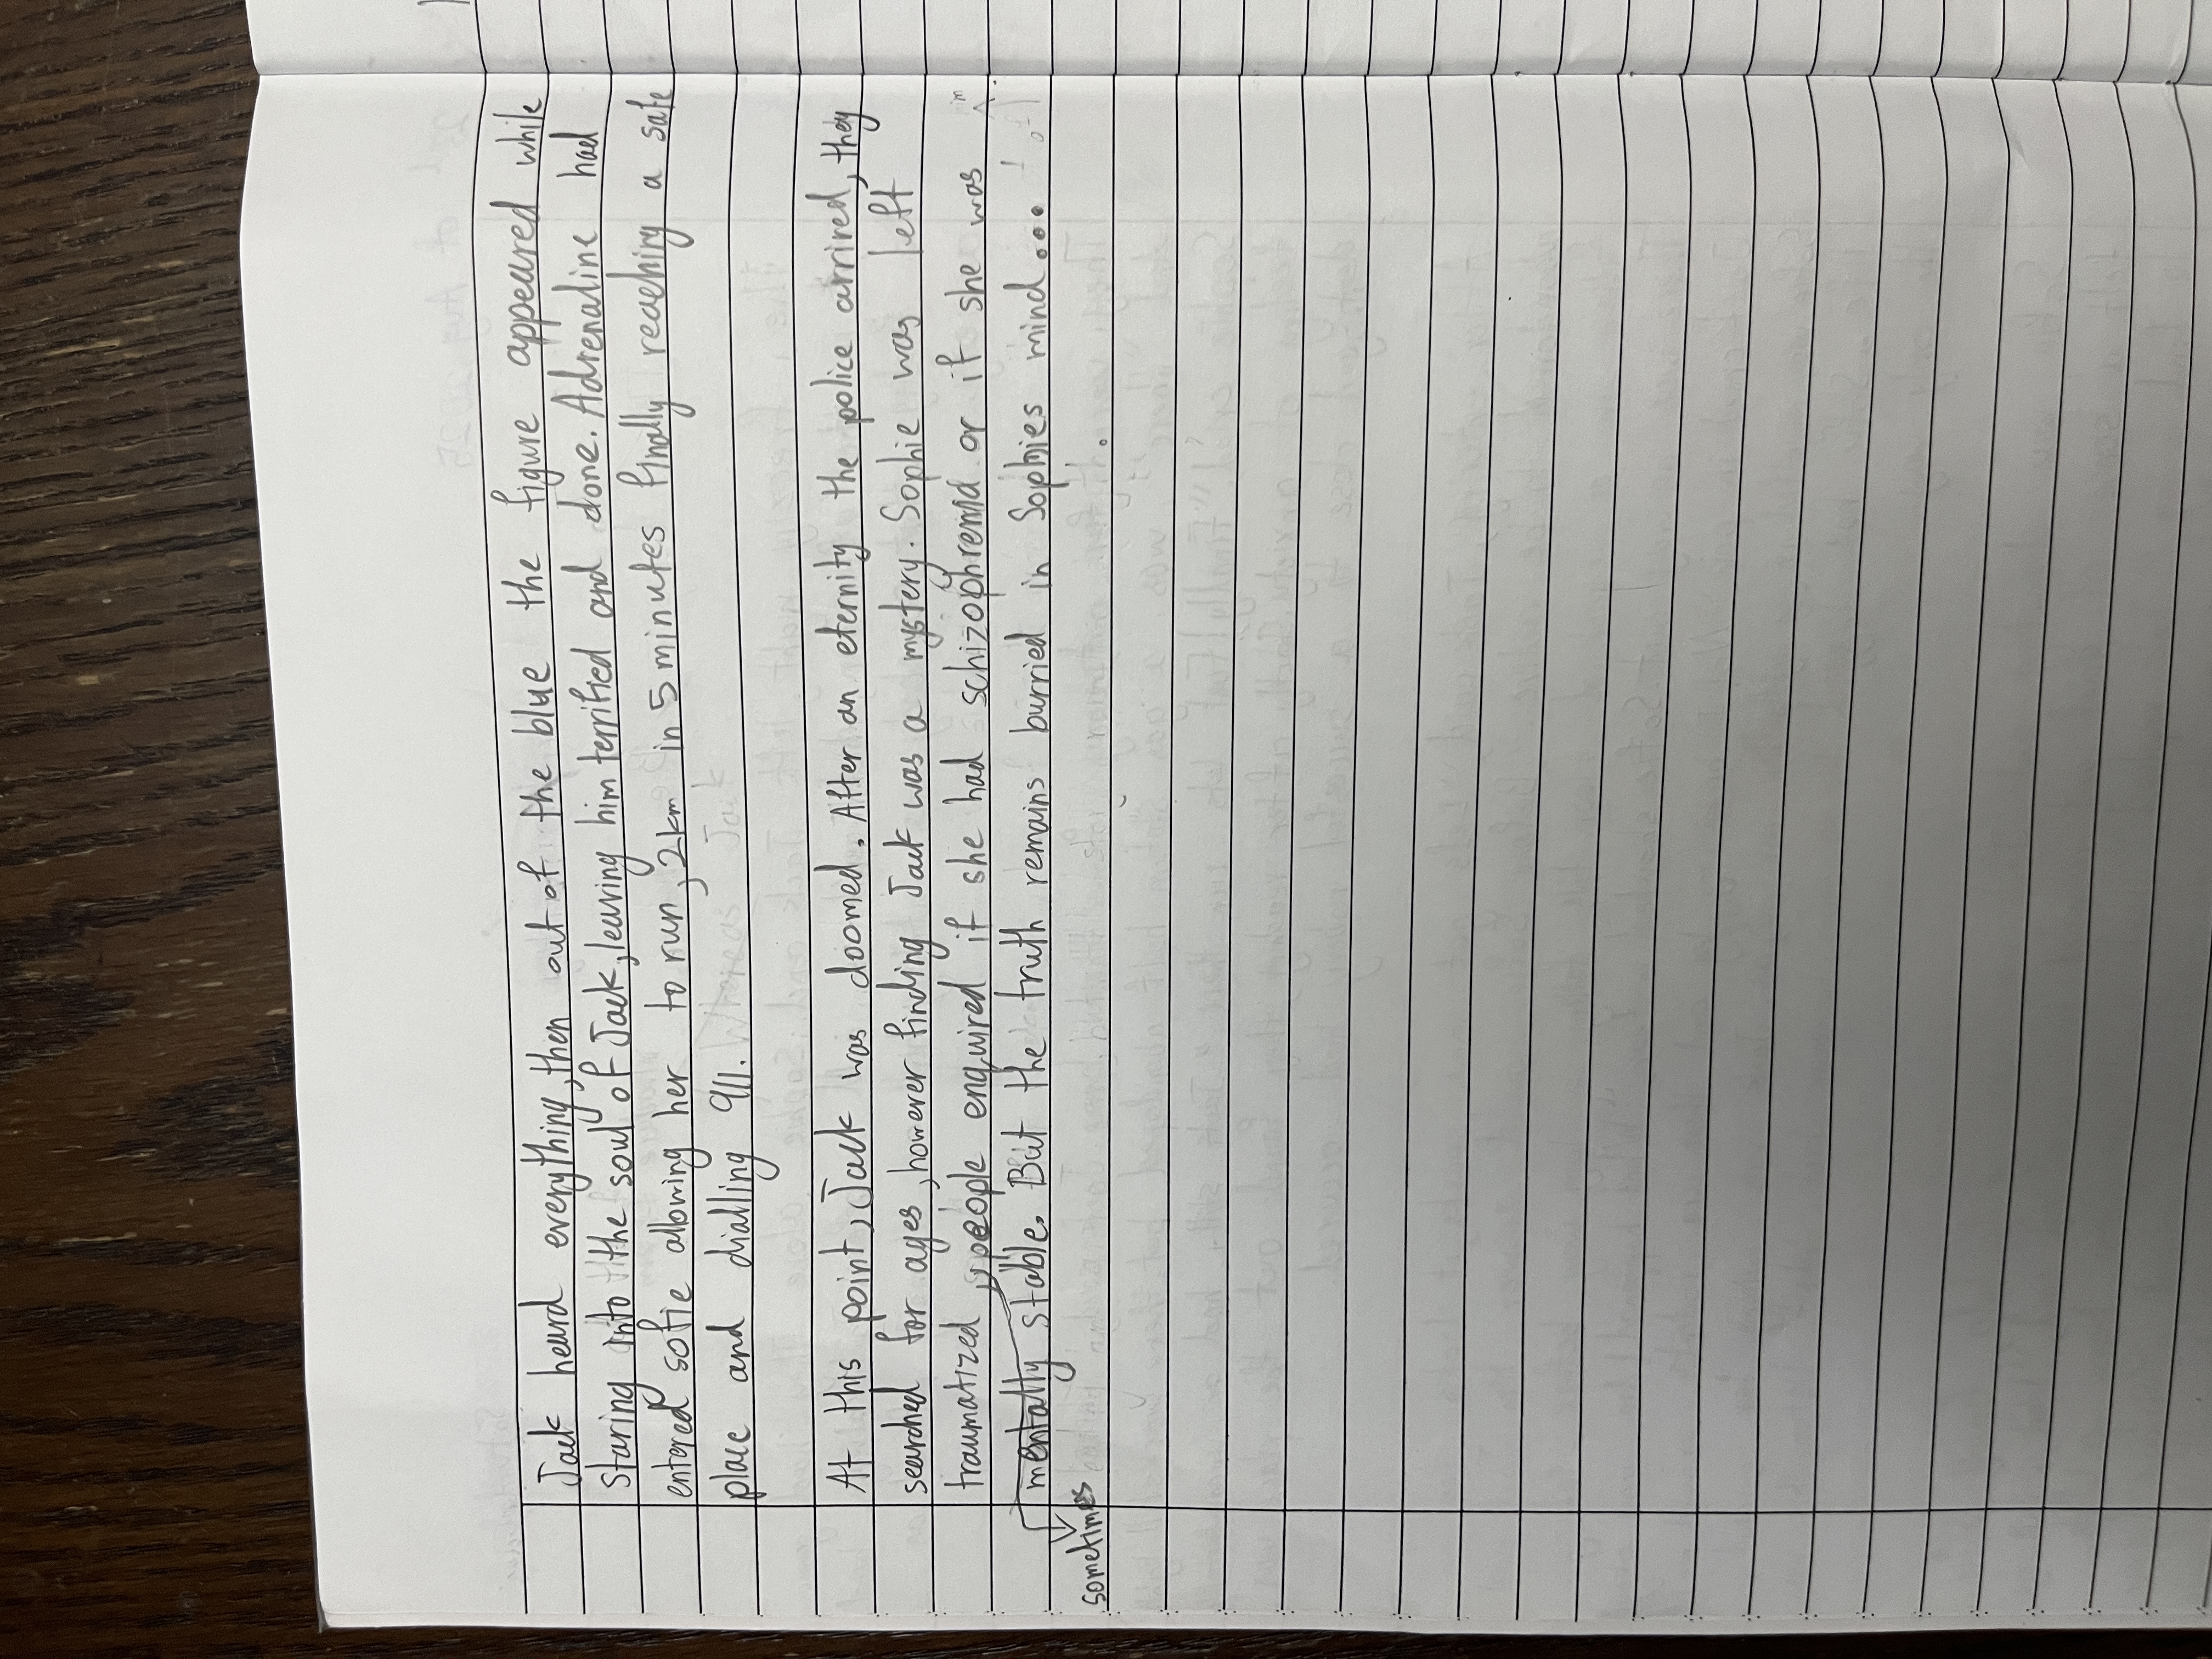 Jack heard everything, then out of the blue the figure appeared while
Staring into the soul of Jack, leaving him terrified and done. Adrenaline had
entered sofie allowing her to run, 2km in 5 minutes finally reaching a safe
place and dialling 911. Whereas Jack
At this point, Jack was doomed. After an eternity the police arrired, they
searched for ages, however finding Jack was a mystery. Sophie was left
traumatized, people enquired if she had schizophrenia or if she was
mentally stable. But the truth remains burried in Sophies mind....
sometimes